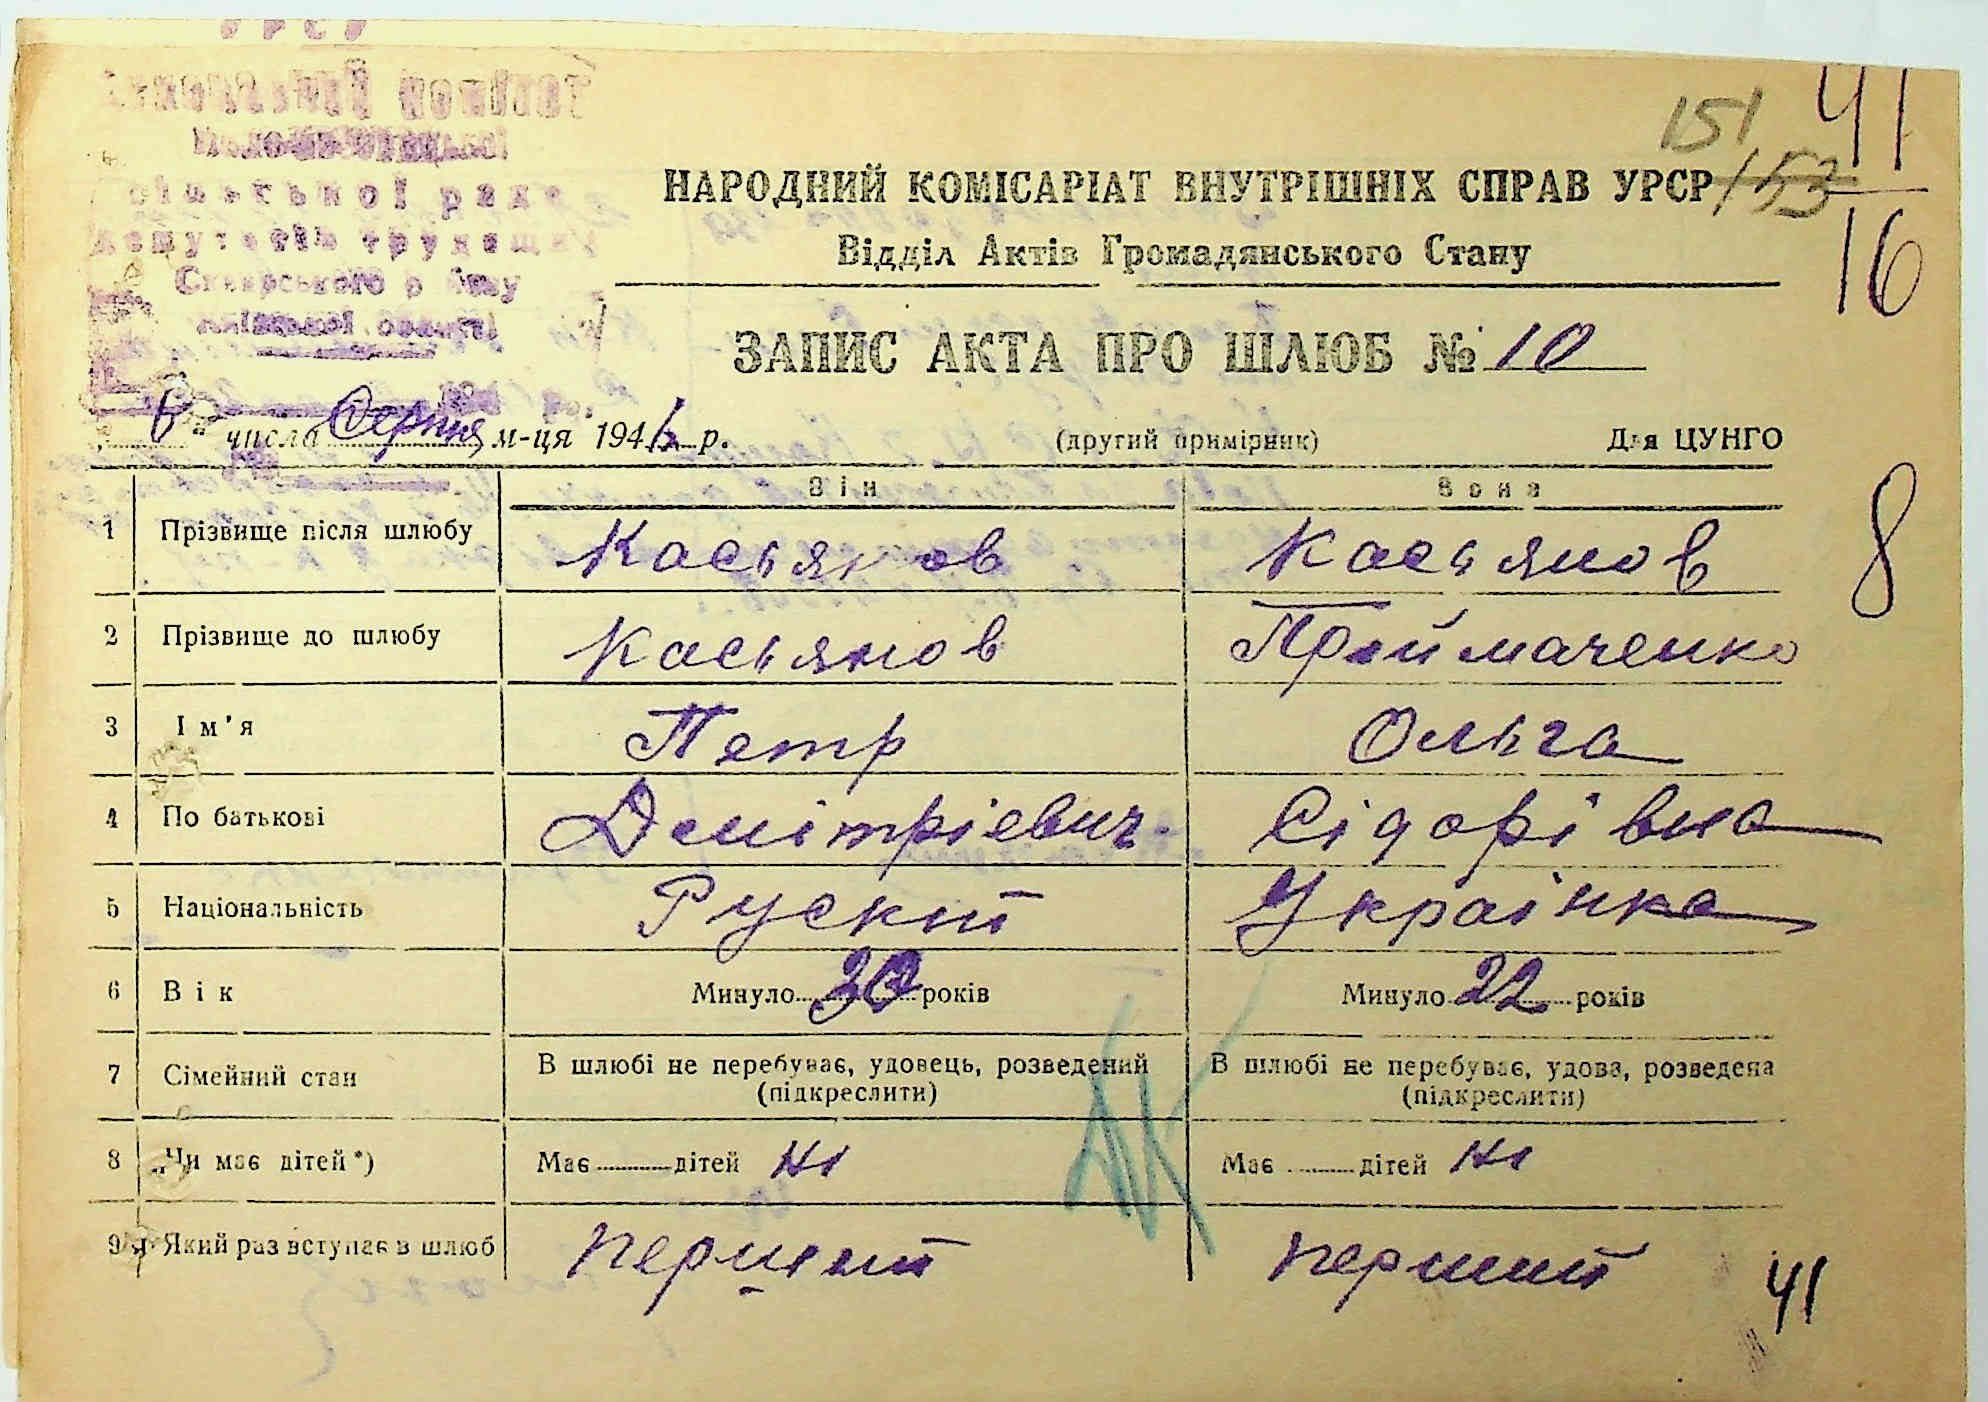 УРСР
сільської ради
депутатів трудящих
Сквирського р-ну
Київської области
151
41
153
16
НАРОДНИЙ КОМІСАРІАТ ВНУТРІШНІХ СПРАВ УРСР
Відділ Актів Громадянського Стану
ЗАПИС АКТА ПРО ШЛЮБ № 10
„ 6 " числа Серпня м-ця 194 р.
(другий примірник)
Для ЦУНГО
Він Вона
1 Прізвище після шлюбу Касьянов Касьянов
8
2 Прізвище до шлюбу Касьянов Приймаченко
3 Ім'я Петр Ольга
4 По батькові Демітріевич Сідорівна
5 Національність Руский Украінка
6 Вік Минуло 20 років Минуло 22 років
7 Сімейний стан В шлюбі не перебуває, удовець, розведений (підкреслити) В шлюбі не перебуває, удова, розведена (підкреслити)
8 Чи має дітей*) Має дітей Ні Має дітей Ні
9 Який раз вступає в шлюб перший перший
41